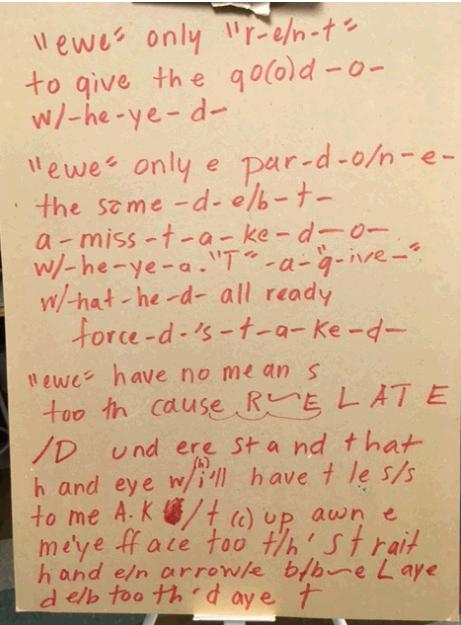 "ewe" only "r-e/n-t"
to give the go(o)d-o-
w/-he-ye-d-
"ewe" only e par-d-o/n-e-
the same -d-e/b-t-
a-miss-t-a-ke-d-o-
w/-he-ye-a."T"-a-"g-ive-"
w/-hat-he-d- all ready
force-d-'s-t-a-ke-d-
"ewe" have no me an s
too th cause R~E L A T E
/D und ere st a nd that
h and eye w/i(h)'ll have t le s/s
to me A.K /t (c) up awn e
me'ye ff ace too t/h' s t rait
h and e/n arrow/e b/b~e L aye
d e/b too th'd aye t